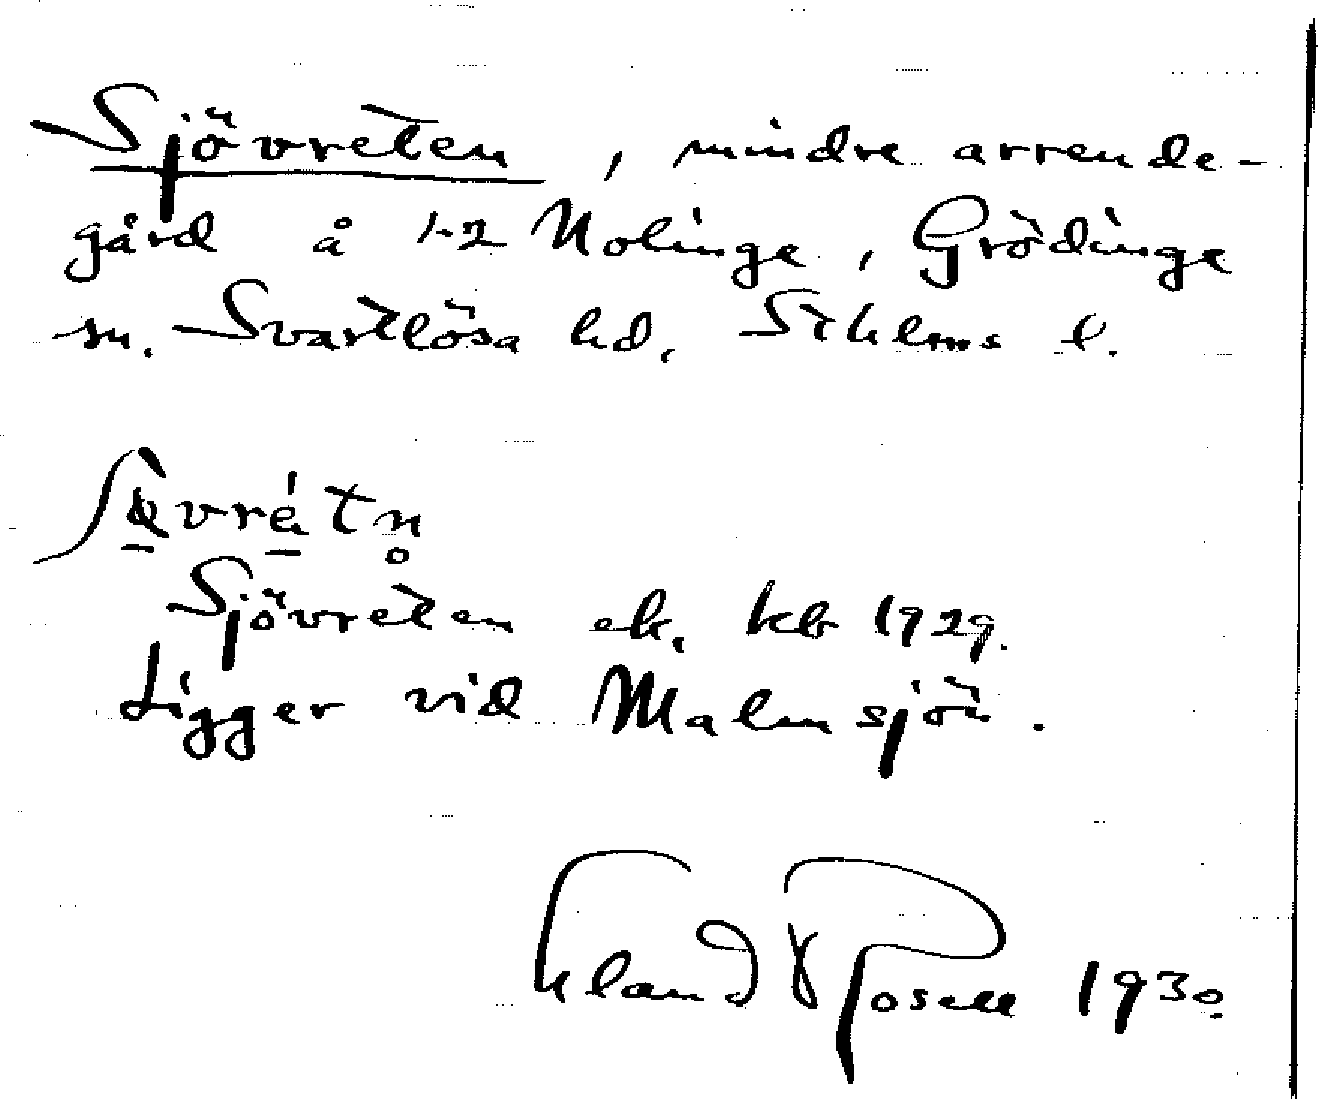 Sjövreten, mindre arrende-
gård å 1-2 Nolinge, Grödinge
sn. Svartlösa hd. Sthlms l.
Sjövreten ek. kb 1929.
Ligger vid Malmsjön.
Rosell 1930